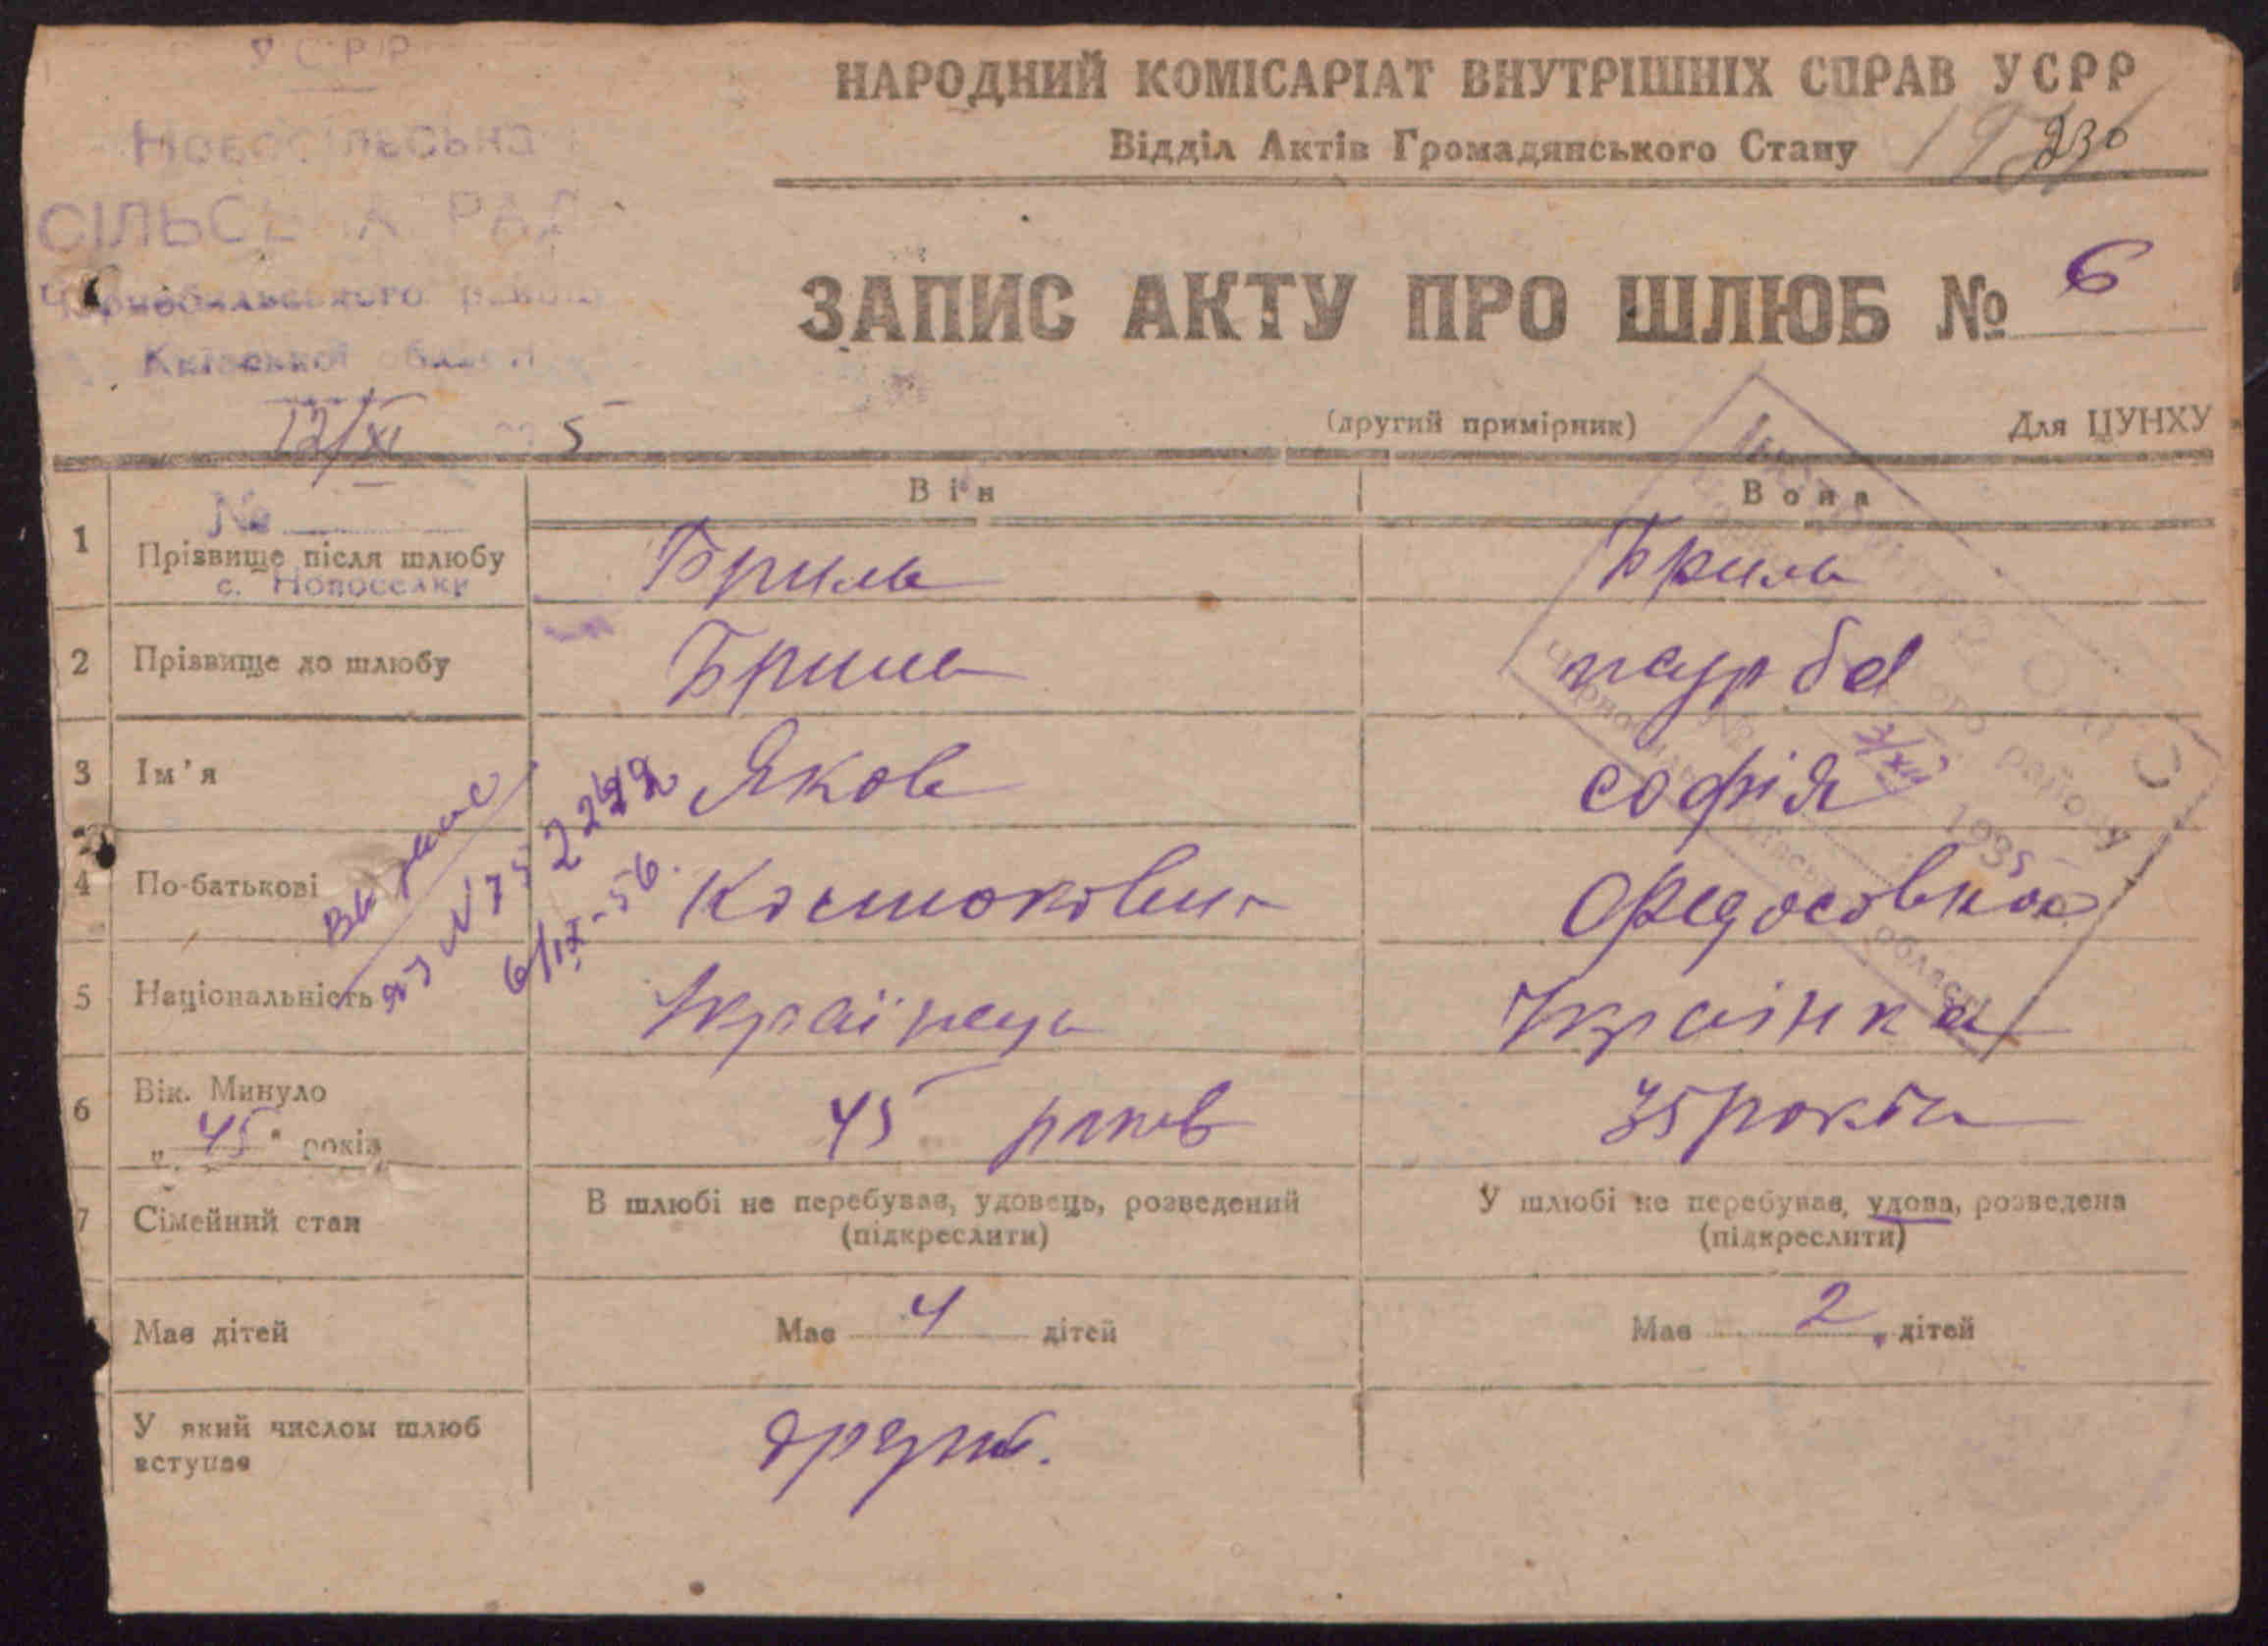 УСРР
Новосільська
СІЛЬСЬКА РАДА
Чорнобильського району
Київської області
12/XI 5
№
с. Новоселки
НАРОДНИЙ КОМІСАРІАТ ВНУТРІШНІХ СПРАВ УСРР
Відділ Актів Громадянського Стану
236
ЗАПИС АКТУ ПРО ШЛЮБ № 6
(другий примірник) Для ЦУНХУ
Він Вона
1 Прізвище після шлюбу Бриль Бриль
2 Прізвище до шлюбу Бриль
3 Ім'я Яков софія
4 По-батькові Федосовною
5 Національність Українець Українка
6 Вік. Минуло „45" років 45 роков 35 років
7 Сімейний стан
В шлюбі не перебував, удовець, розведений (підкреслити)
У шлюбі не перебував, удова, розведена (підкреслити)
Має дітей Має 4 дітей Має 2 дітей
У який числом шлюб вступає
6/IX-56.
3/XII 1935
району
області